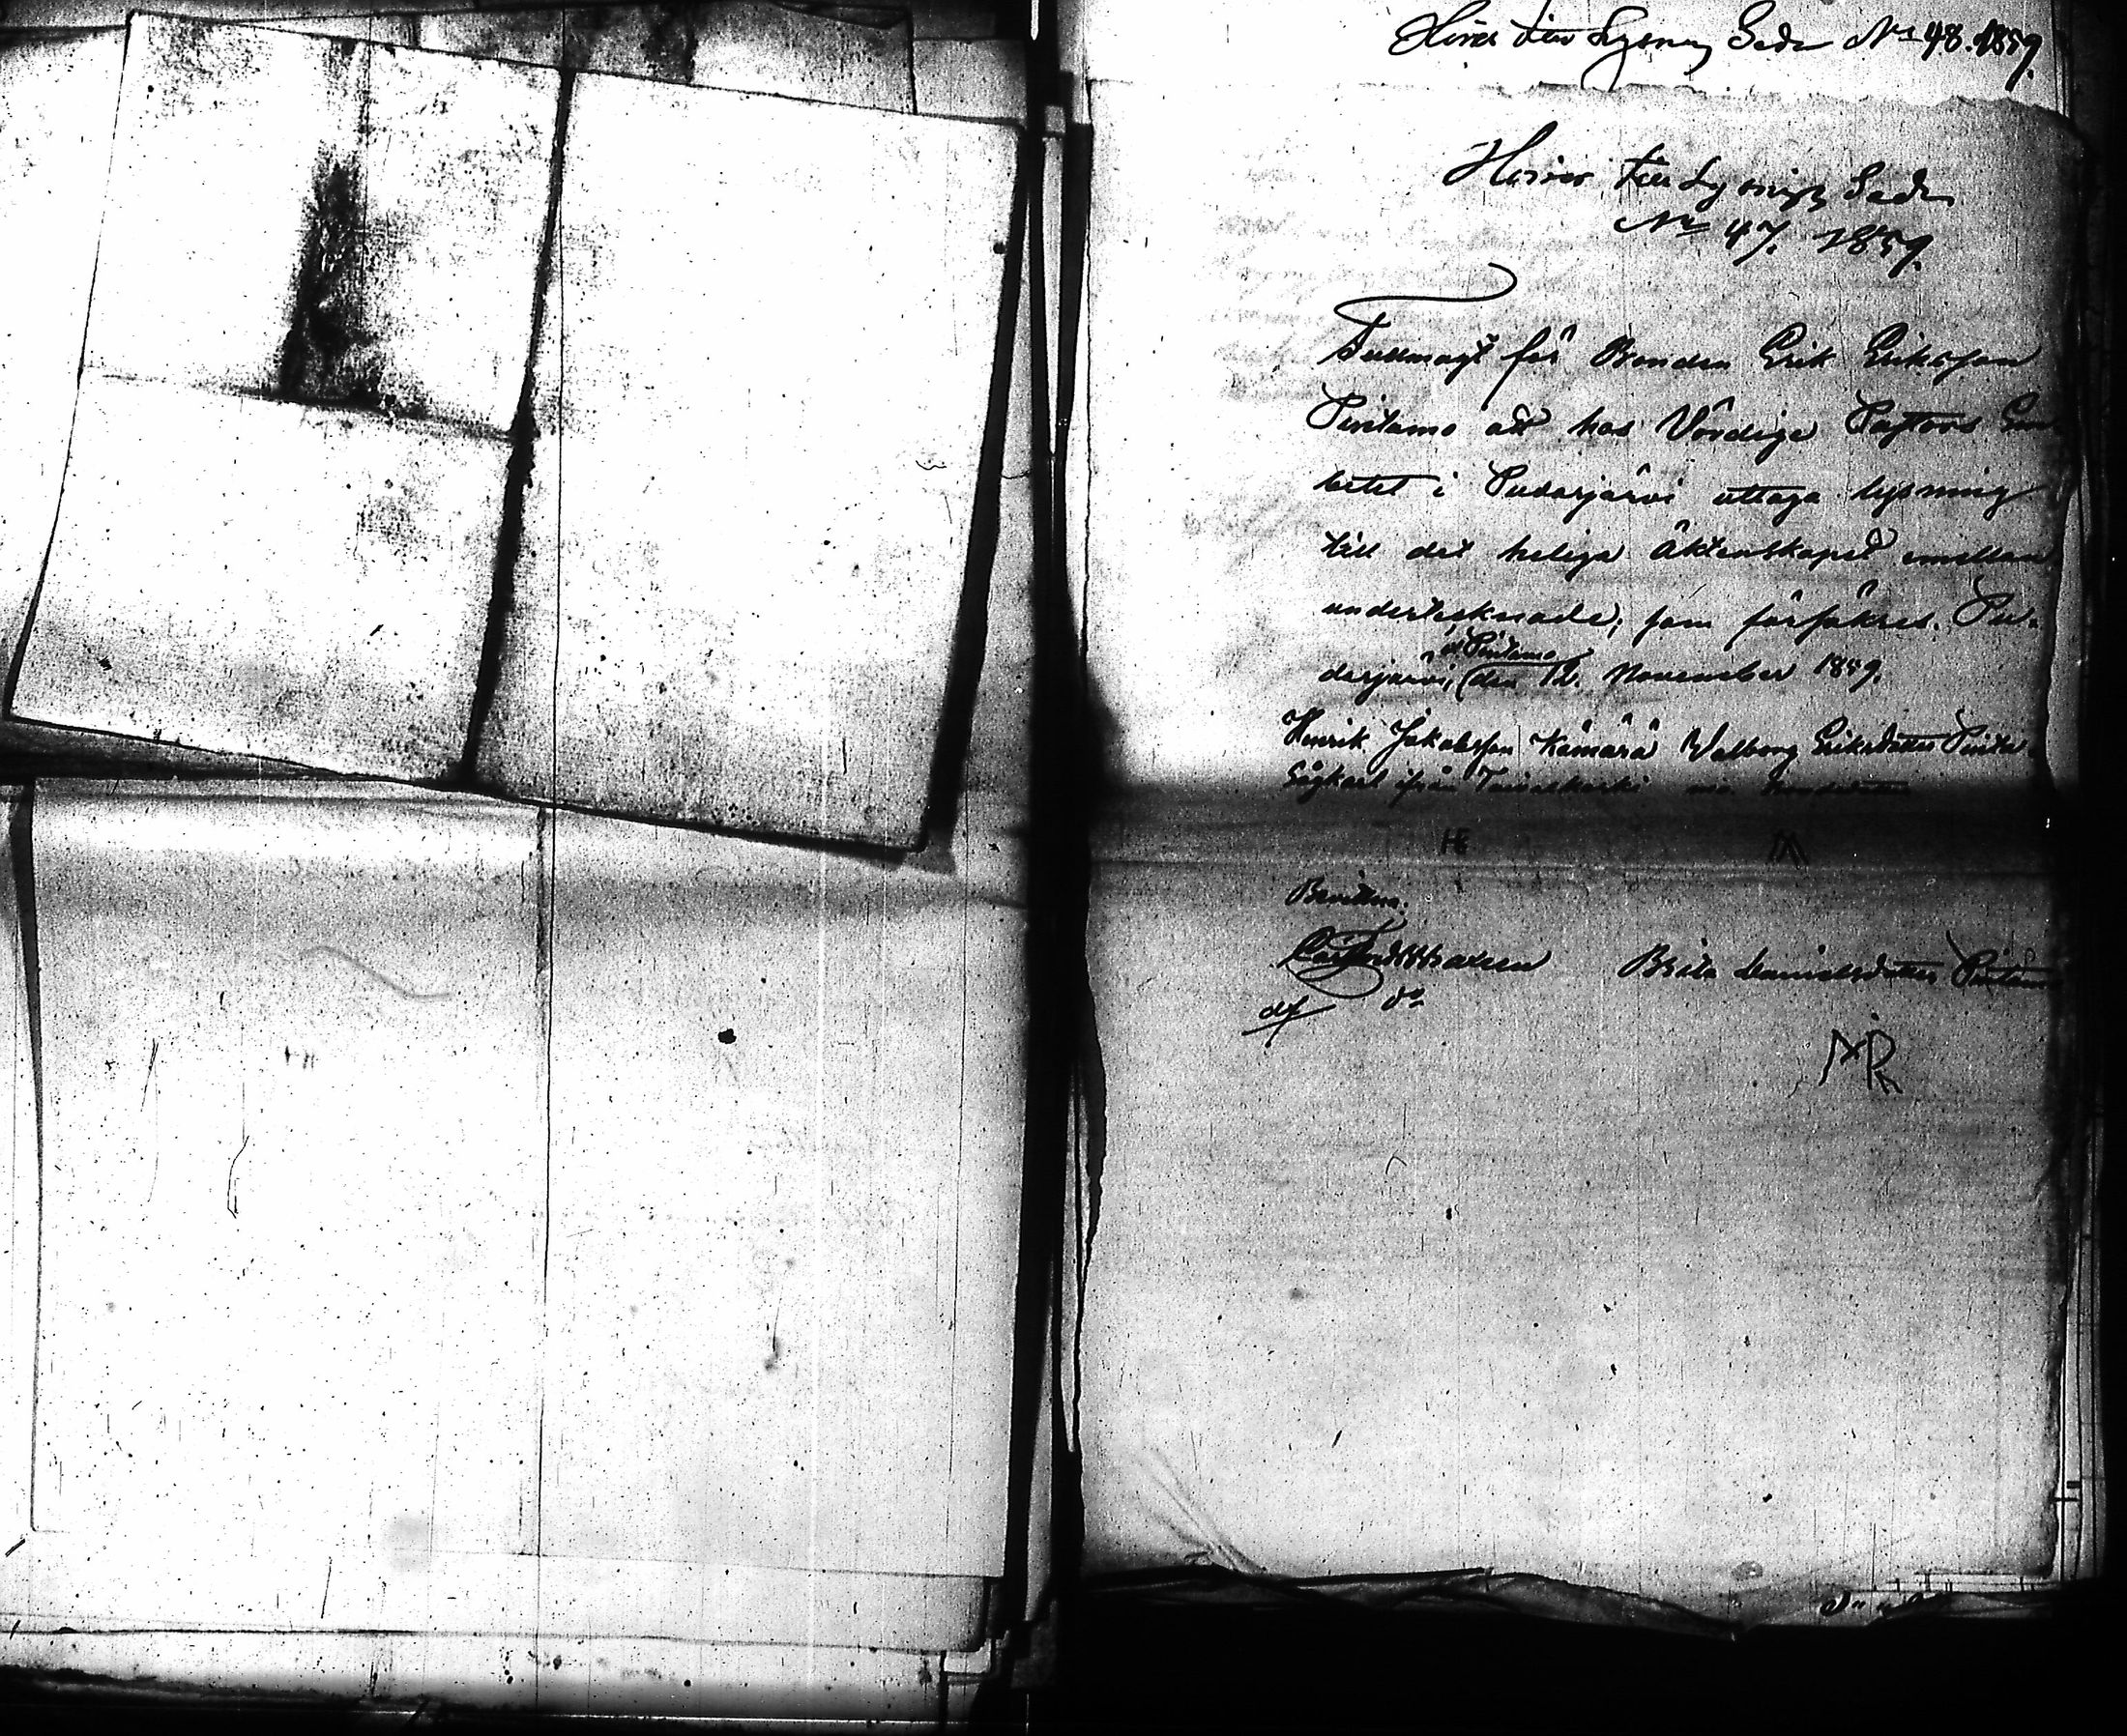 Hörer till Lysnings Sedn No 48. 1859.
Hörer till Lysnings Sedn
No 47. 1859.
Fullmagt för Bonden Erik Eriksson
Pintamo att hos Vördige Pastors Em-
betet i Pudasjärvi uttaga lysning
till det heliga Äktenskapet emellan
undertecknade; som försäkres. Pu-
dasjärvi, (den 12. November 1859.
af Pintamo
Henrik Jakobsson Kämärä Walborg Eriksdotter Pinta-
ifrån Taivalkoski mo
HE
Bevittna:
Brita Danielsdotter Pintamo